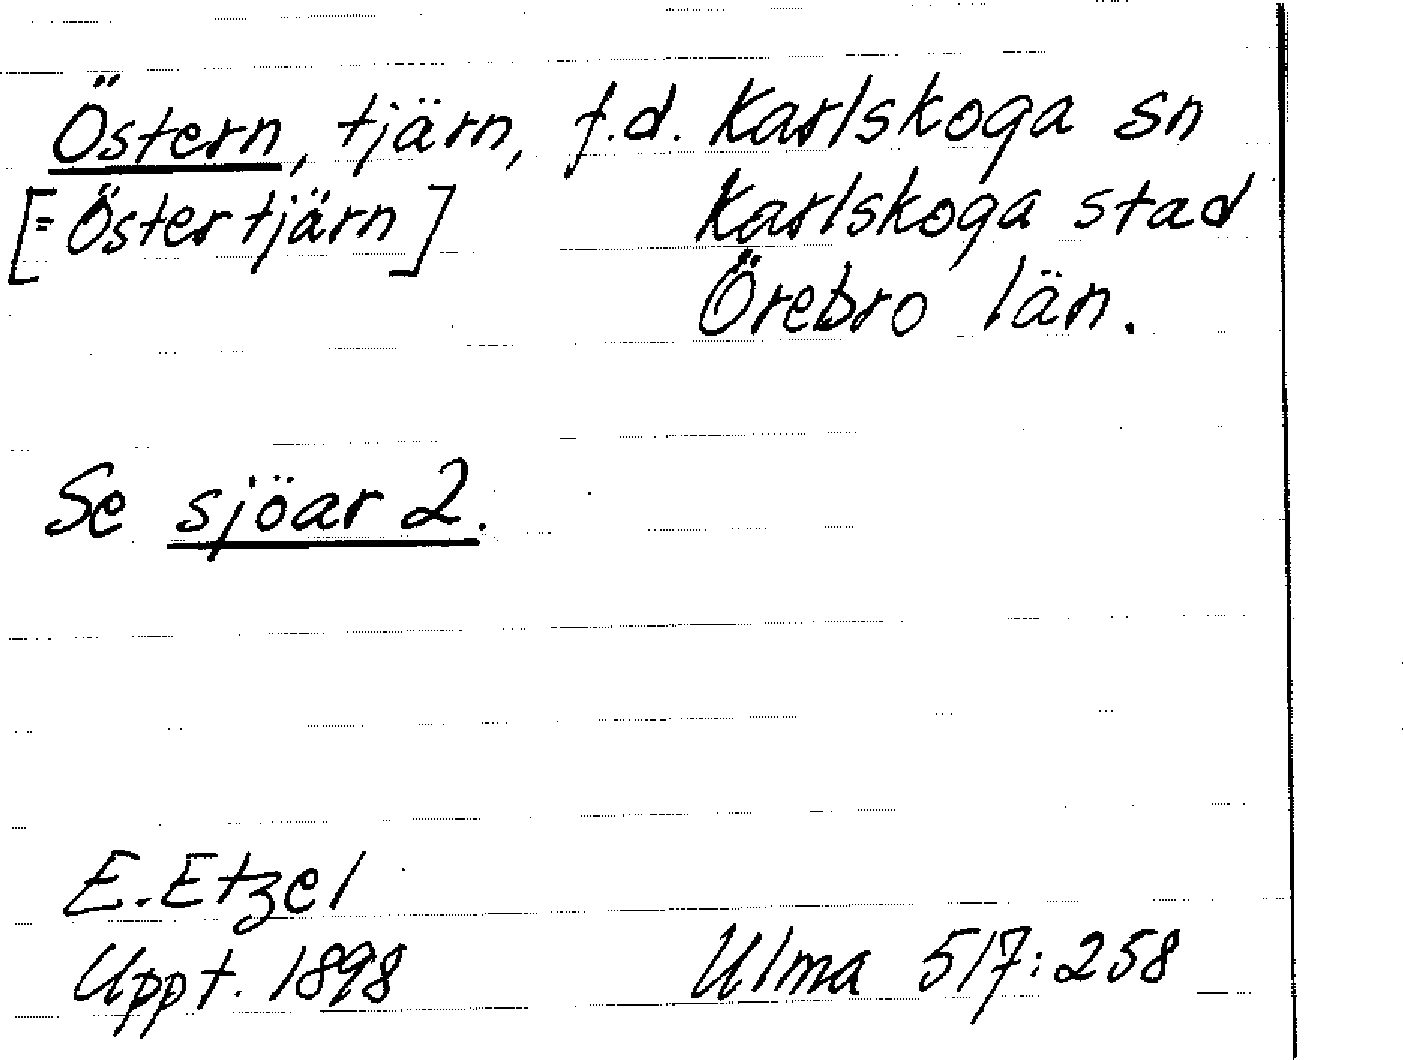 Östern, tjärn, f.d. Karlskoga sn
[= Östertjärn] Karlskoga stad
Örebro län.
Se sjöar 2.
E. Etzel
Uppt. 1898 Ulma 517:258